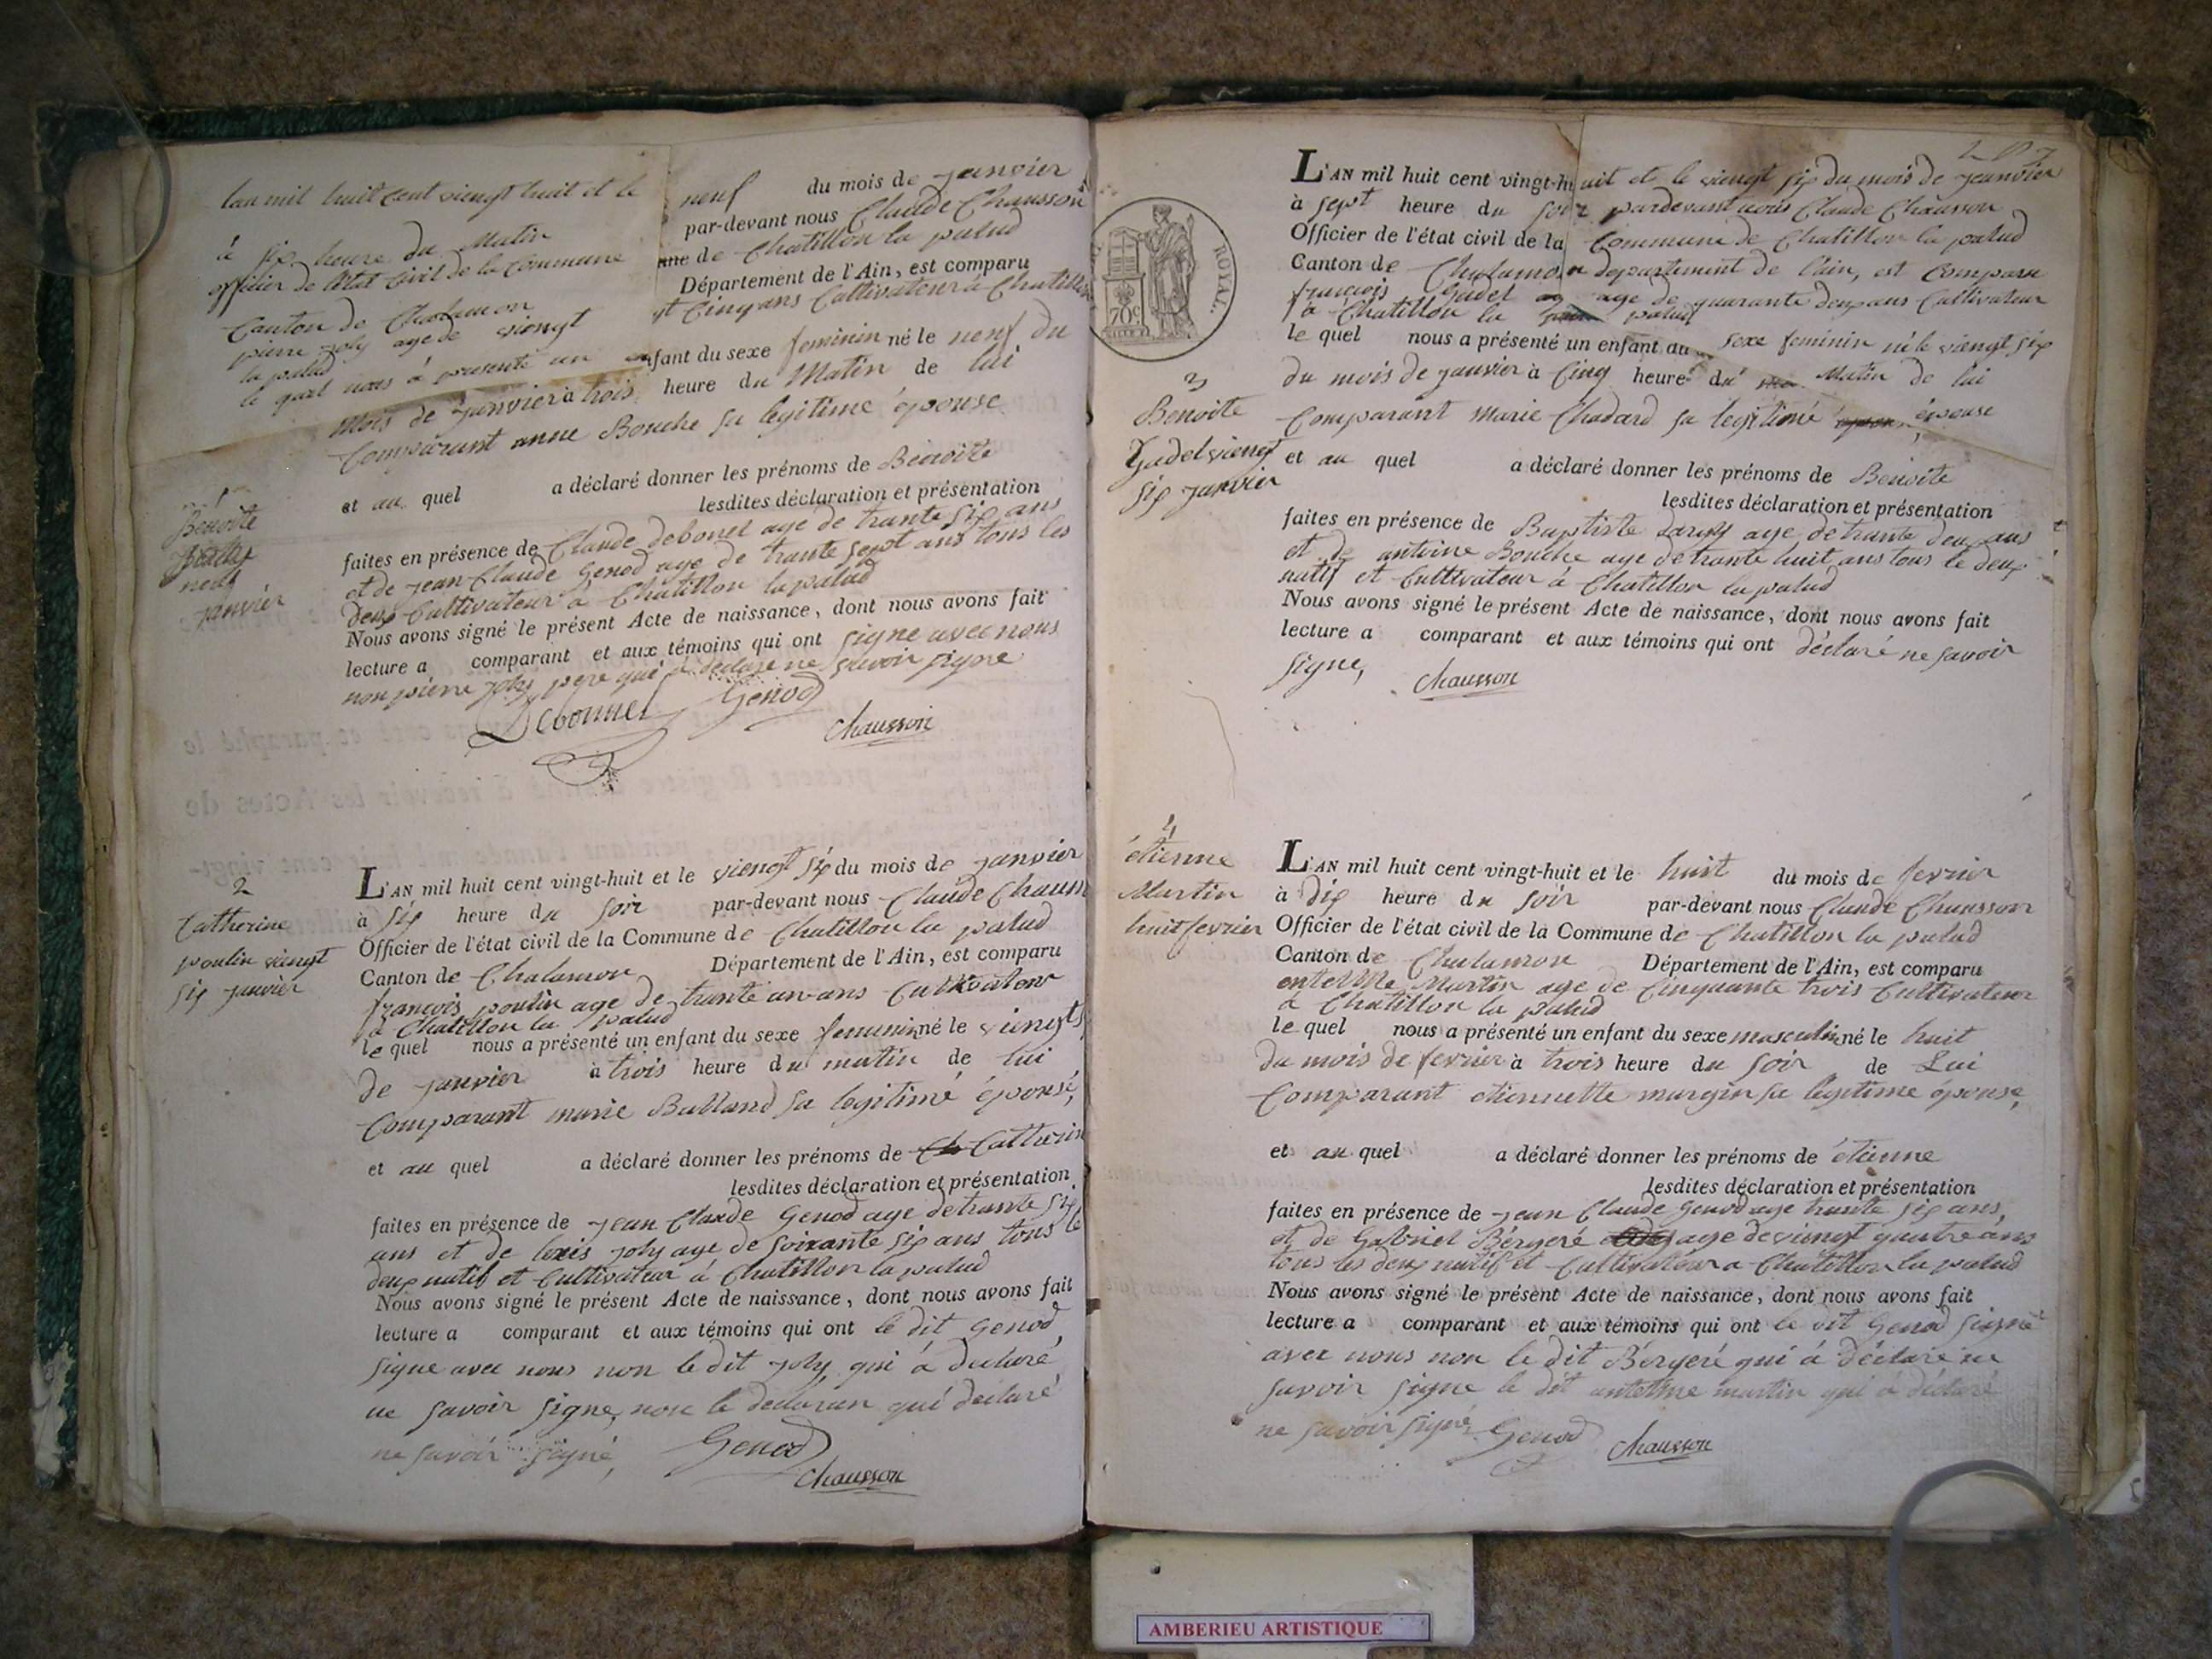 lan mil huit cent viengt huit et le neuf du mois de janvier
à six heure du Matin par-devant nous Claude Chausson
officier de l'état Civil de la Commune de Chatillon la palud
Canton de Chalamon Département de l'Ain, est comparu
pierre joly age de viengt et Cinq ans Cultivateur a Chatillon
la palud
le quel nous à presenté un enfant du sexe feminin né le neuf du
mois de janvier à trois heure du Matin de lui
Comparant anne Bouche sa legitime épouse
et au quel a déclaré donner les prénoms de Benoite
lesdites déclaration et présentation
faites en présence de Claude debonel age de trante six ans
et de jean Claude Genod age de trante sept ans tous les
deux Cultivateur à Chatillon la palud
Nous avons signé le présent Acte de naissance, dont nous avons fait
lecture a comparant et aux témoins qui ont signe avec nous
non pierre joly pere qui à declare ne savoir signe
Debonnel Genod
Chausson
1
Benoite
neuf
janvier
2
Catherine
poulin viengt
six janvier
L'AN mil huit cent vingt-huit et le viengt six du mois de janvier
à six heure du soir par-devant nous Claude Chausson
Officier de l'état civil de la Commune de Chatillon la palud
Canton de Chalamon Département de l'Ain, est comparu
françois poulin age de trante un ans Cultivateur
a Chatillon la palud
le quel nous a présenté un enfant du sexe feminin né le viengt s
de janvier à trois heure du matin de lui
Comparant marie Balland sa legitimé épousé,
et au quel a déclaré donner les prénoms de Catherin
lesdites déclaration et présentation
faites en présence de jean Claude Genod age de trante six
ans et de louis joly age de soixante six ans tous le
deux natif et Cultivateur à Chatillon la palud
Nous avons signé le présent Acte de naissance, dont nous avons fait
lecture a comparant et aux témoins qui ont le dit Genod,
signe avec nous non le dit joly, qui à declaré
ne savoir signe, non le declaran qui declaré
ne savoir signé,
Genod
Chausson
L'AN mil huit cent vingt-huit et le viengt six du mois de janvier
à sept heure du soir pardevant nous Claude Chausson
Officier de l'état civil de la Commune de Chatillon la palud
Canton de Chalamon departement de l'ain, est Comparu
françois Gudel age de quarante deux ans Cultivateur
à Chatillon la palud
le quel nous a présenté un enfant du sexe feminin né le viengt six
du mois de janvier à Cinq heure du Matin de lui
Comparant marie Chadard sa legitimé épouse
et au quel a déclaré donner les prénoms de Benoite
lesdites déclaration et présentation
faites en présence de Baptiste age de trante deux ans
et de antoine Bouche age de trante huit ans tous le deux
natif et Cultivateur à Chatillon la palud
Nous avons signé le présent Acte de naissance, dont nous avons fait
lecture a comparant et aux témoins qui ont déclaré ne savoir
signe,
Chausson
ROYAL.
70c
3
Benoite
Gudel viengt
six janvier
4
étienne
Martin
huit fevrier
L'AN mil huit cent vingt-huit et le huit du mois de fevrier
à dix heure du soir par-devant nous Claude Chausson
Officier de l'état civil de la Commune de Chatillon la palud
Canton de Chalamon Département de l'Ain, est comparu
antelme Martin age de Cinquante trois Cultivateur
a Chatillon la palud
le quel nous a présenté un enfant du sexe masculin né le huit
du mois de fevrier à trois heure du soir de Lui
Comparant etiennette margin sa legitime épouse,
et au quel a déclaré donner les prénoms de étienne
lesdites déclaration et présentation
faites en présence de jean Claude Genod age trante six ans,
et de Gabriel Bérgeré age de viengt quatre ans
tous les deux natif et Cultivateur a Chatillon la palud
Nous avons signé le présent Acte de naissance, dont nous avons fait
lecture a comparant et aux témoins qui ont le dit Genod signe
avec nous non le dit Bérgeré qui à déclaré ne
savoir signe le dit antelme martin qui à déclaré
ne savoir signé,
Genod
Chausson
AMBERIEU ARTISTIQUE